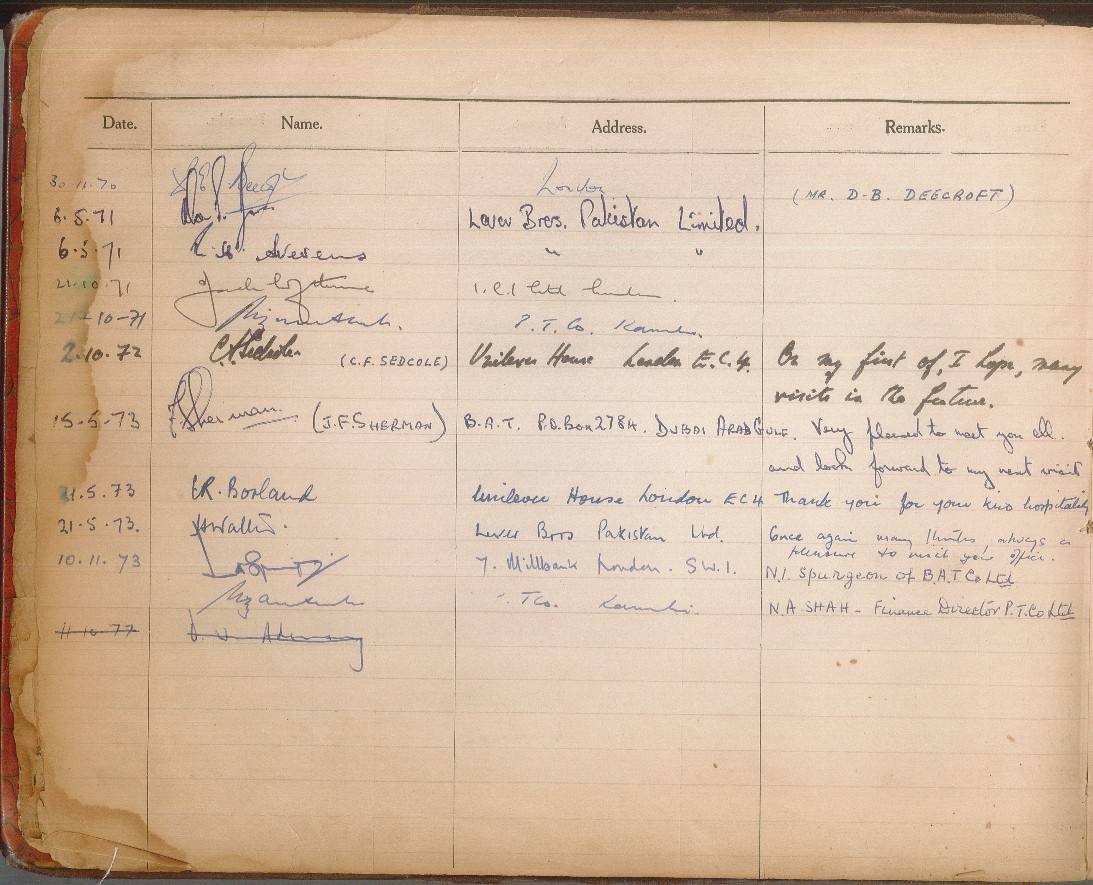 Date. Name. Address. Remarks.
30.11.70 London (MR. D-B. DEECROFT)
6.5.71 Lever Bros. Pakistan Limited.
6.5.71 Stevens " "
21.10.71 I.C.I. Ltd London.
10-71 P.T.Co.
2.10.72 C.F. Sedcole (C.F. SEDCOLE) Unilever House London E.C.4. On my first of, I hope, many
visits in the future.
15-5-73 J.F. Sherman. (J.F. SHERMAN) B.A.T. P.O. Box 2784. DUBAI ARAB GULF. Very pleased to meet you all.
and look forward to my next visit
21.5.73 R. Borland Unilever House London EC4 Thank you for your kind hospitality
21.5.73. Lever Bros Pakistan Ltd. Once again many thanks, always a
pleasure to visit your office.
10.11.73 7. Millbank London. SW.1. N.I. Spurgeon of B.A.T. Co Ltd
N.A SHAH - Finance Director P.T. Co Ltd